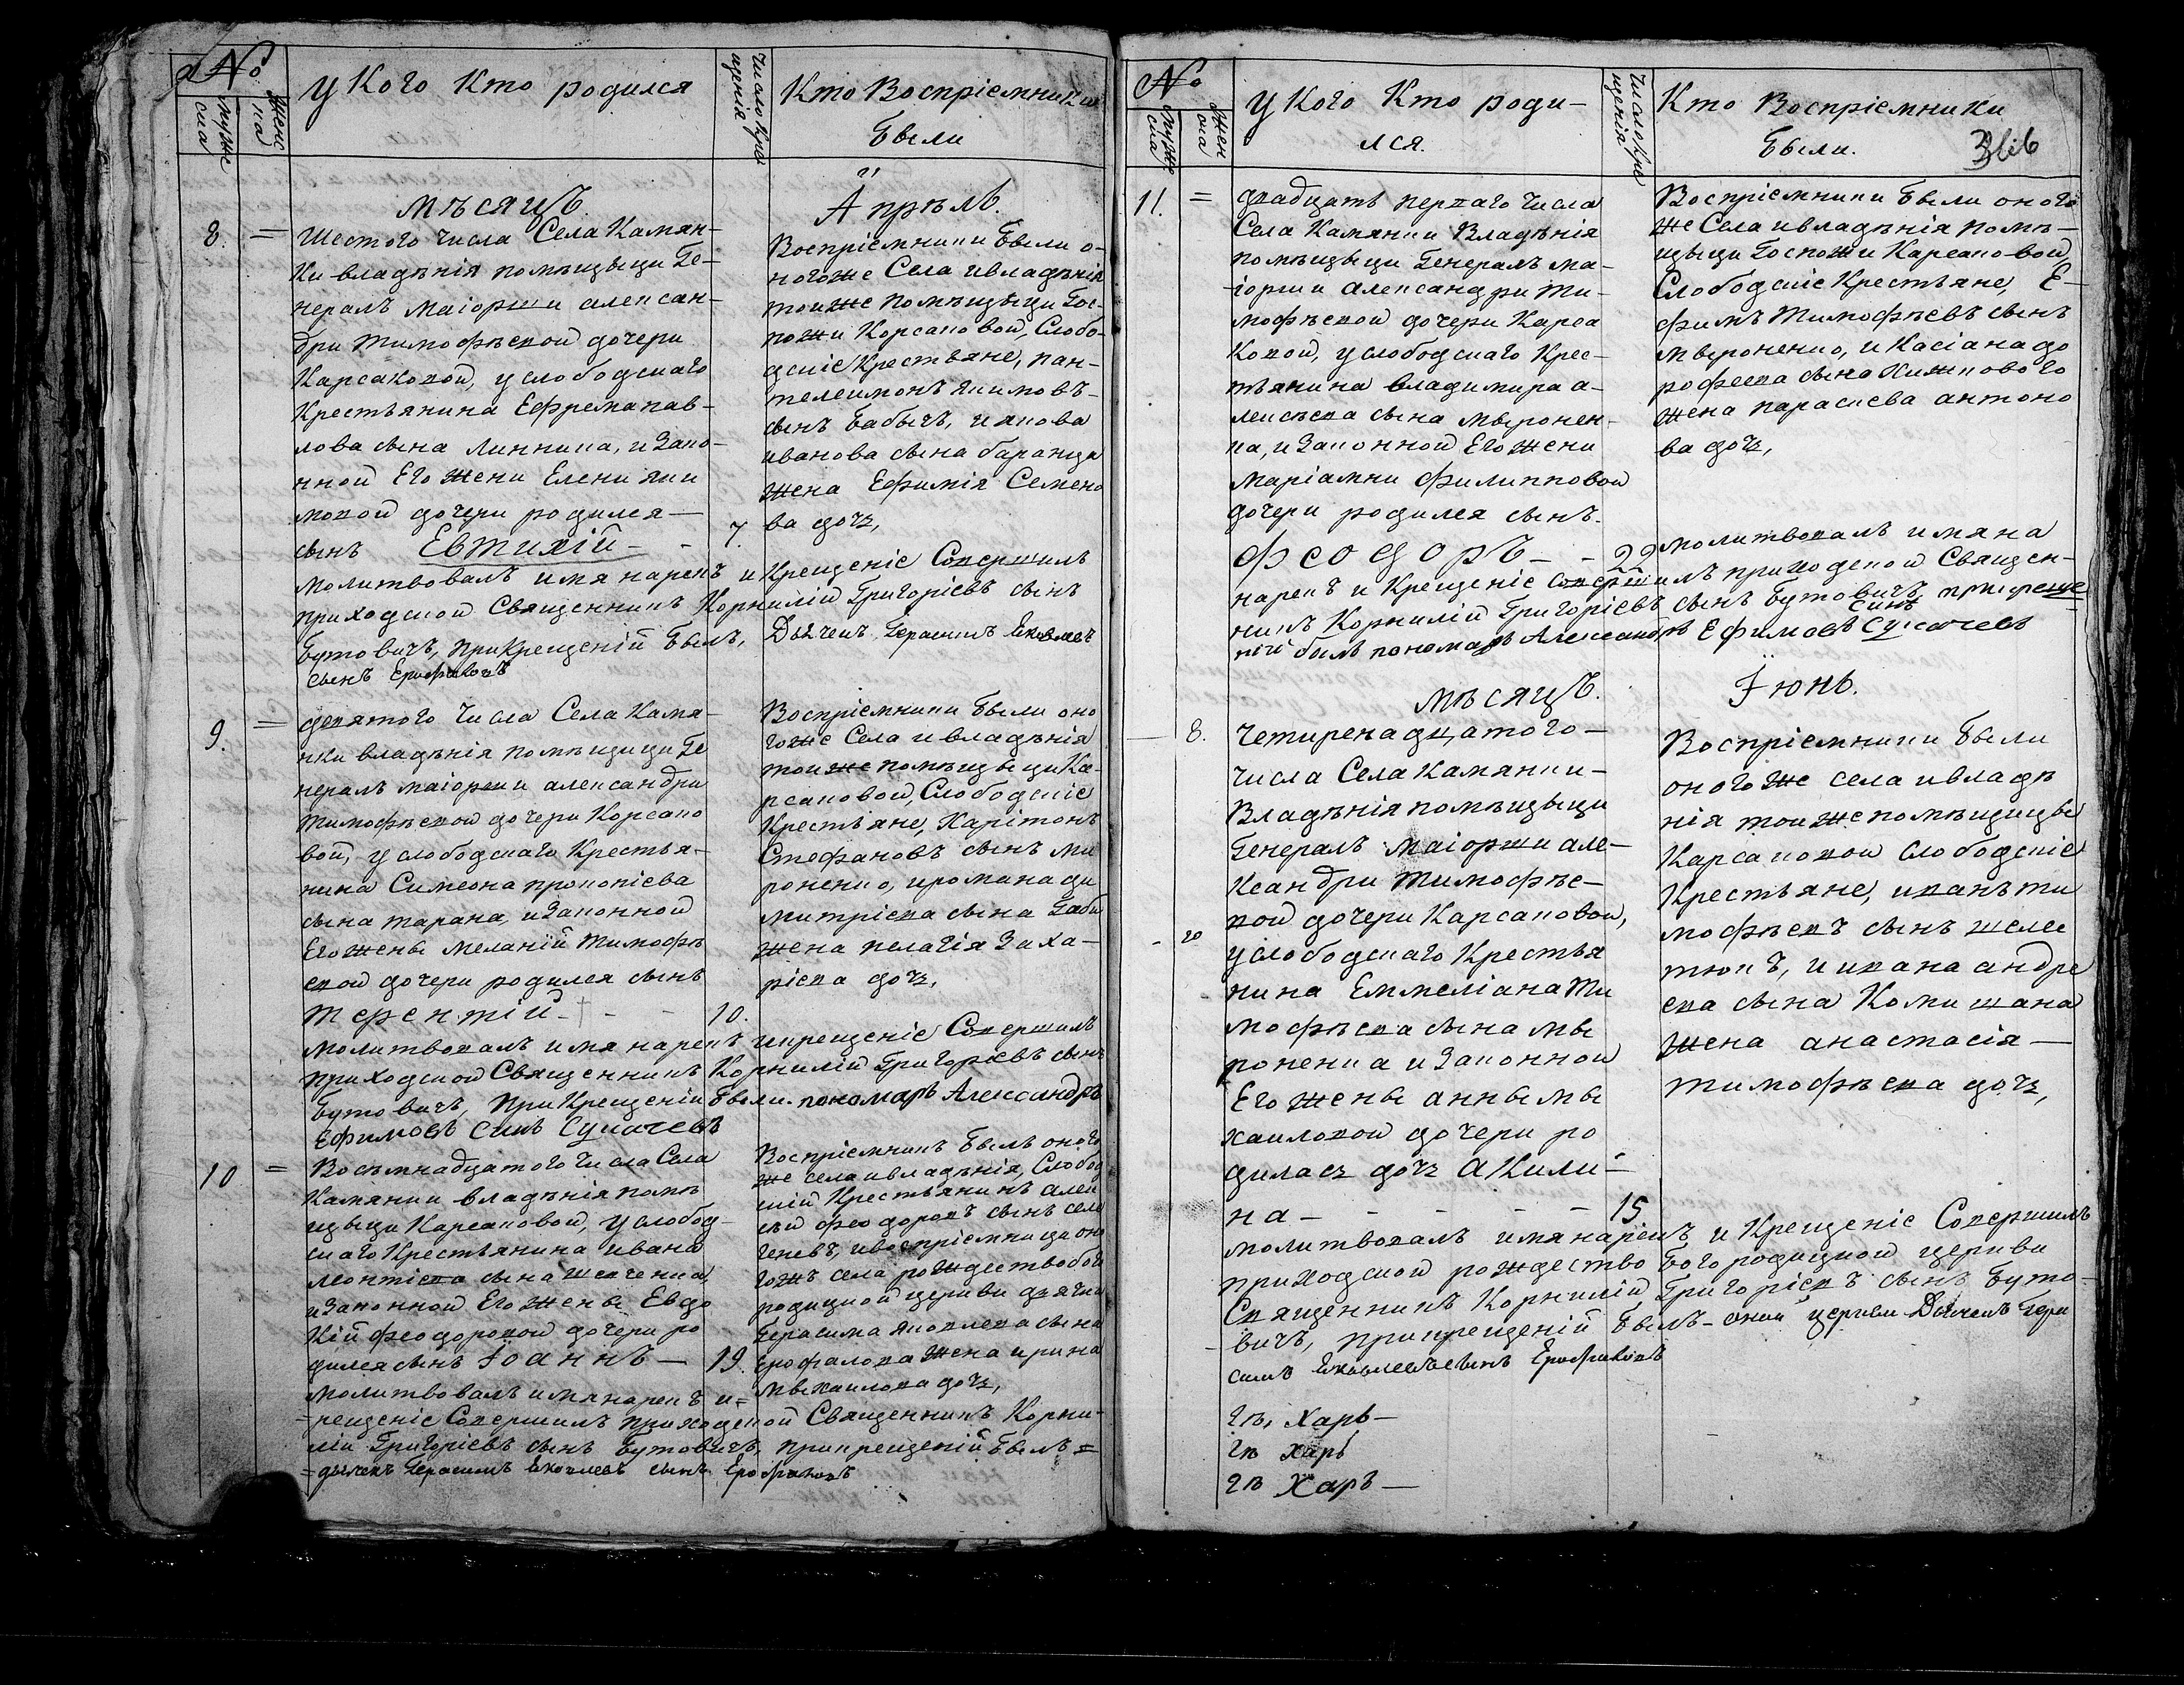 №
Муже
ска
Женс
ка
У Кого Кто родился
Число Кре
щенія
Кто Воспріемники
Были
Мѣсяцъ
Апрѣль.
8.
Шестого числа Села Камян-
ки владѣнія помѣщыци Ге-
нералъ маіорши алексан-
дри Тимофѣевой дочери
Карсаковой, услободскаго
Крестьянина Ефрема пав-
лова сына Линника, и Зако-
нной Его жени Елени яки
мовой дочери родился
сынъ Евтихій - - 7.
Воспріемники Были о-
ногоже Села ивладѣнія
тоиже помѣщыци Гос-
пожи Корсаковой, Слобо-
дскіе Крестьяне, пан-
телеимонъ якимовъ
сынъ бабычъ, и якова
иванова сына баранца
жена Ефимія Семено
ва дочъ,
молитвовалъ имя нарекъ и Крещеніе Совершилъ
приходской Священникъ Корнилій Григоріевъ сынъ
Бутовичъ, при Крещеній Былъ, Дьячекъ Герасимъ Яковлевъ
сынъ Ерофаловъ
9.
девятого числа Села Камя-
нки владѣнія помѣщици Ге
нералъ маіорши александри
Тимофѣевой дочери Корсако
вой, услободскаго Крестья-
нина Симеона прокопіева
сына тарана, и Законной
Его жены Меланіи Тимофѣ
евой дочери родился сынъ
Терентій - - - 10.
Воспріемники были оно
гоже Села ивладѣнія
тоиже помѣщыци Ка-
рсаковой, Слободскіе
Крестьяне, Харітонъ
Стефановъ сынъ Ми
роненко, ирománа ди
митріева сына Габи
жена пелагія Заха-
ріева дочъ,
молитвовалъ имя нарекъ икрещеніе Совершилъ
приходской Священникъ Корнилій Григоріевъ сынъ
Бутовичъ, при Крещеніи Были. пономаръ Александръ
Ефимовъ синъ Сукачевъ
10
Восѣмнадцатого числа Села
Камянки владѣнія помѣ
щыци Карсаковой, услобод-
скаго Крестьянина ивана
леонтіева сына шевченка,
и Законной Его жены Евдо
кіи феодоровой дочери ро
дился сынъ Іоаннъ — 19.
Воспріемникъ Былъ оного
же села ивладѣнія, Слобод
скій Крестьянинъ алек
сѣй феодоровъ сынъ селе
геневъ, ивоспріемница оно
гожъ села рождествобого
родицкой церкви дьячка
Герасима яковлева сына
Ерофалова жена ирина
Мыхаилова дочъ,
Молитвовалъ имя нарекъ и=
=рещеніе Совершилъ приходской Священникъ Корни-
лій Григоріевъ сынъ Бутовичъ, прикрещеній Былъ =
= дьячекъ Герасимъ Яковлевъ сынъ Ерофаловъ
№
Муже
ска
Жен
ска
У Кого Кто роди-
лся.
Число Кре
щенія
Кто Воспріемники
Были.
366
11.
двадцать перваго числа
Села Камянки Владѣнія
помѣщыци Генералъ ма-
іорши александри Ти-
мофѣевой дочери Карса
ковой, услободскаго Крес-
тьянина владимира а-
лексѣева сына мыронен-
ка, и Законной Его жени
маріамни филипповой
дочери родился сынъ.
Феодоръ - - 22
Воспріемники Были оного
же Села ивладѣнія помѣ-
щыци Госпожи Карсаковой,
Слободскіе Крестьяне, Е-
фимъ Тимофѣевъ сынъ
Мыроненко, и Касіана до
рофеева сына Хижнкового
жена параскева антоно
ва дочъ,
молитвовалъ имя на
нарекъ и Крещеніе Совершилъ приходской Священ-
никъ Корнилій Григоріевъ сынъ Бутовичъ, прикреще
ніи былъ пономаръ Александръ Ефимовъ синъ Сукачевъ
Мѣсяцъ.
Іюнь.
8.
Четиренадцатого-
числа Села Камянки-
Владѣнія помѣщыци
Генералъ маіорши але-
ксандри Тимофѣе-
вой дочери Карсаковой,
услободскаго Крестья
нина Еммеліана Ти
мофѣева сына мы
роненка и Законной
Его жены анны мы
хаиловой дочери ро
дилась дочъ Акили-
на - - - - - 15
Воспріемники были
оногоже села ивладѣ
нія тоиже помѣщицы
Карсаковой слободскіе
Крестьяне, иванъ ти
мофѣевъ сынъ шеле
тюкъ, и ивана андре
ева сына Комишана
жена анастасія-
тимофѣева дочъ,
молитвовалъ имя нарекъ, и Крещеніе Совершилъ
приходской рождество Богородицкой церкви
Священникъ Корнилій Григоріевъ сынъ Буто-
вичъ, прикрещеній Былъ - оной церкви Дьячекъ Гера
симъ Яковлевъ сынъ Ерофаловъ